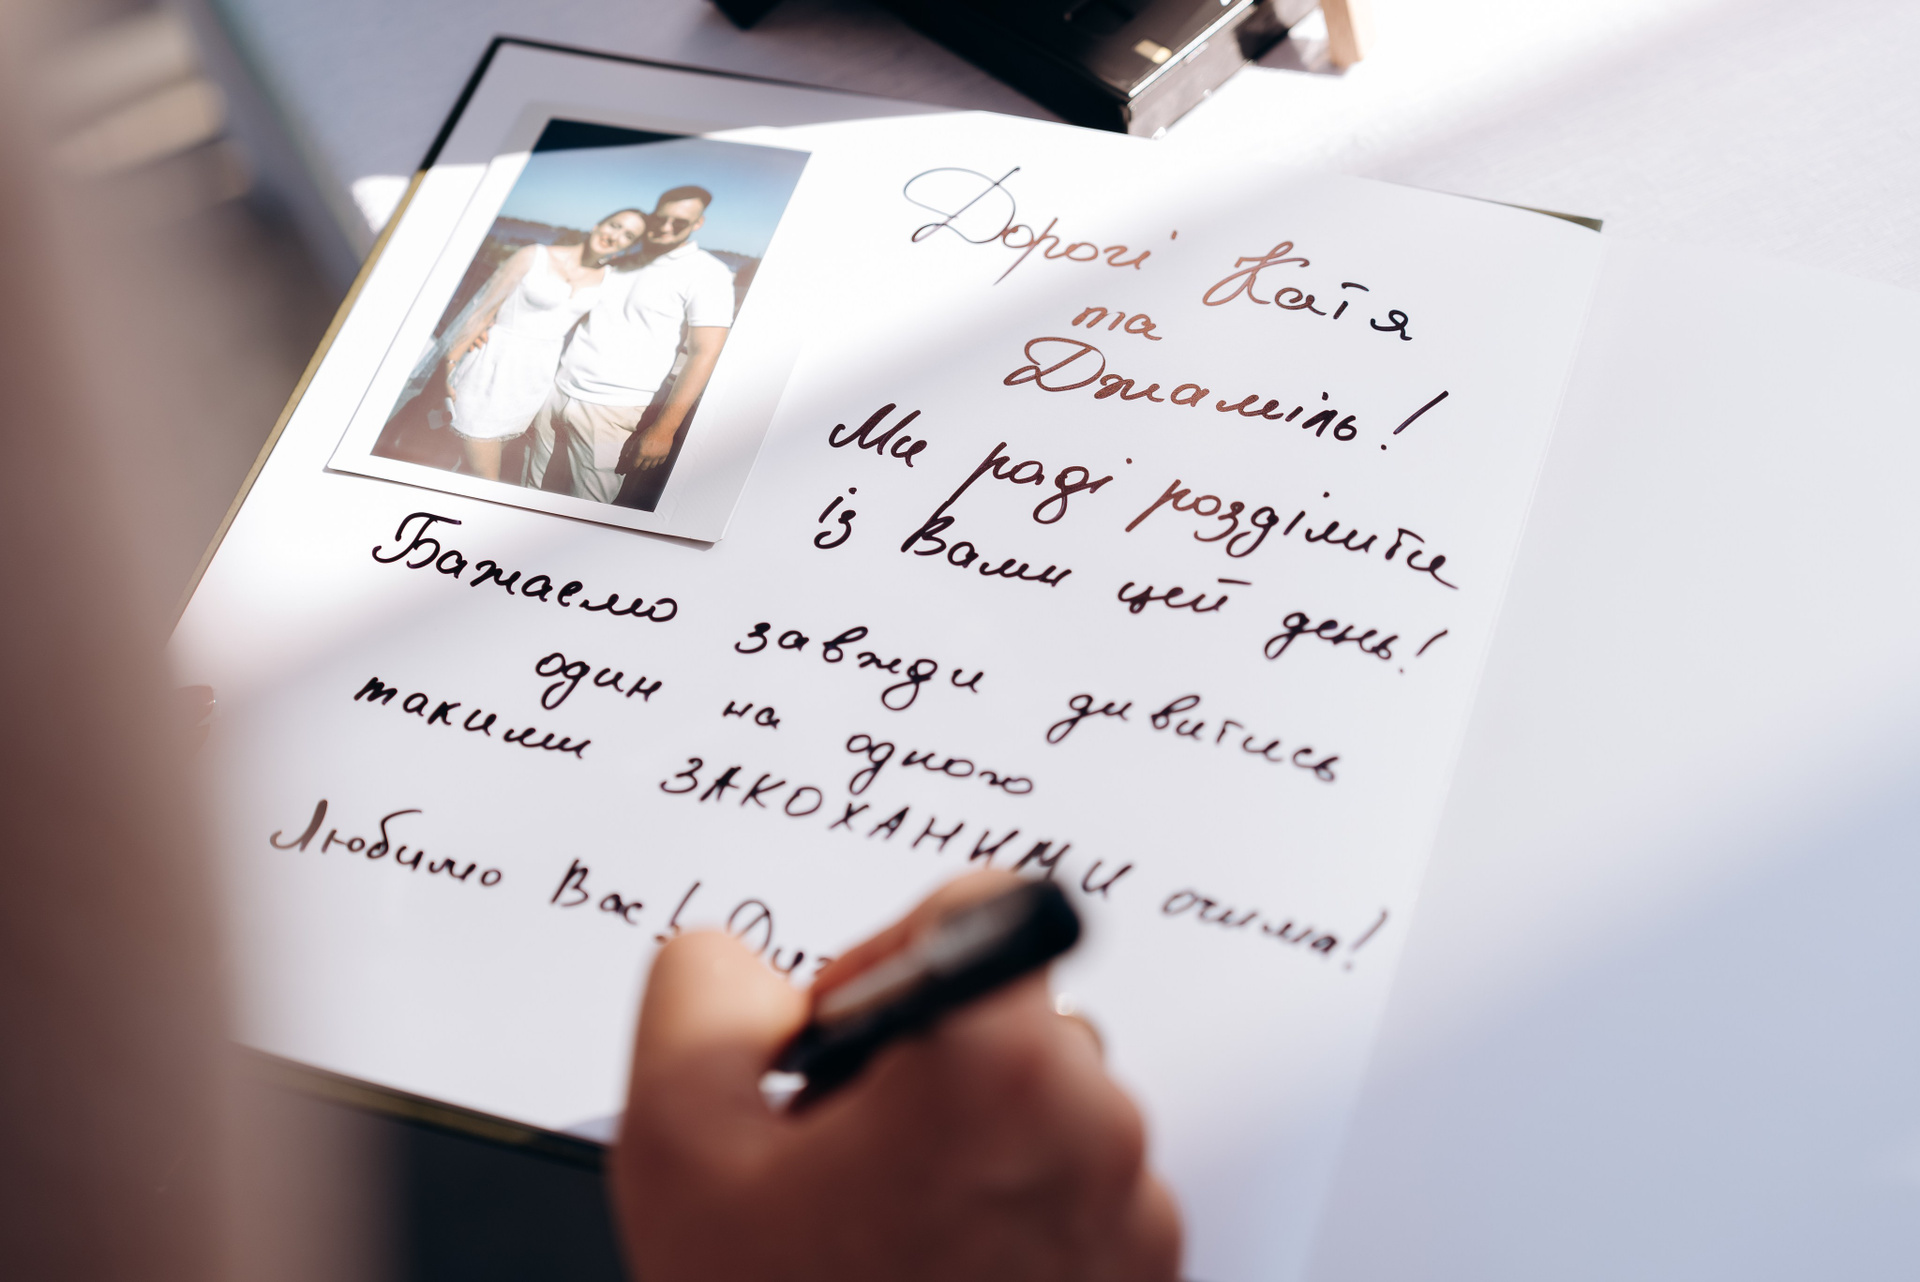 Дорогі Катя
та
Джаміль!
Ми раді розділити
із Вами цей день!
Бажаємо завжди дивитись
один на одного
такими ЗАКОХАНИМИ очима!
Любимо Вас!